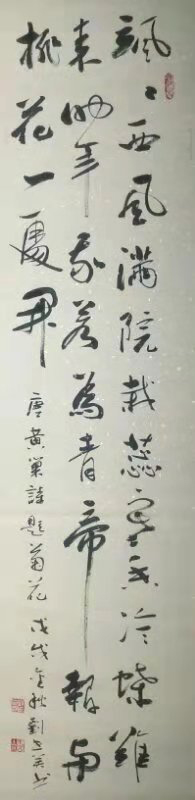 颯々西风滿院栽蕊寒香冷蝶難
来他年我若為青帝報与
桃花一處開
唐黄巢詩題菊花戊戌金秋劉